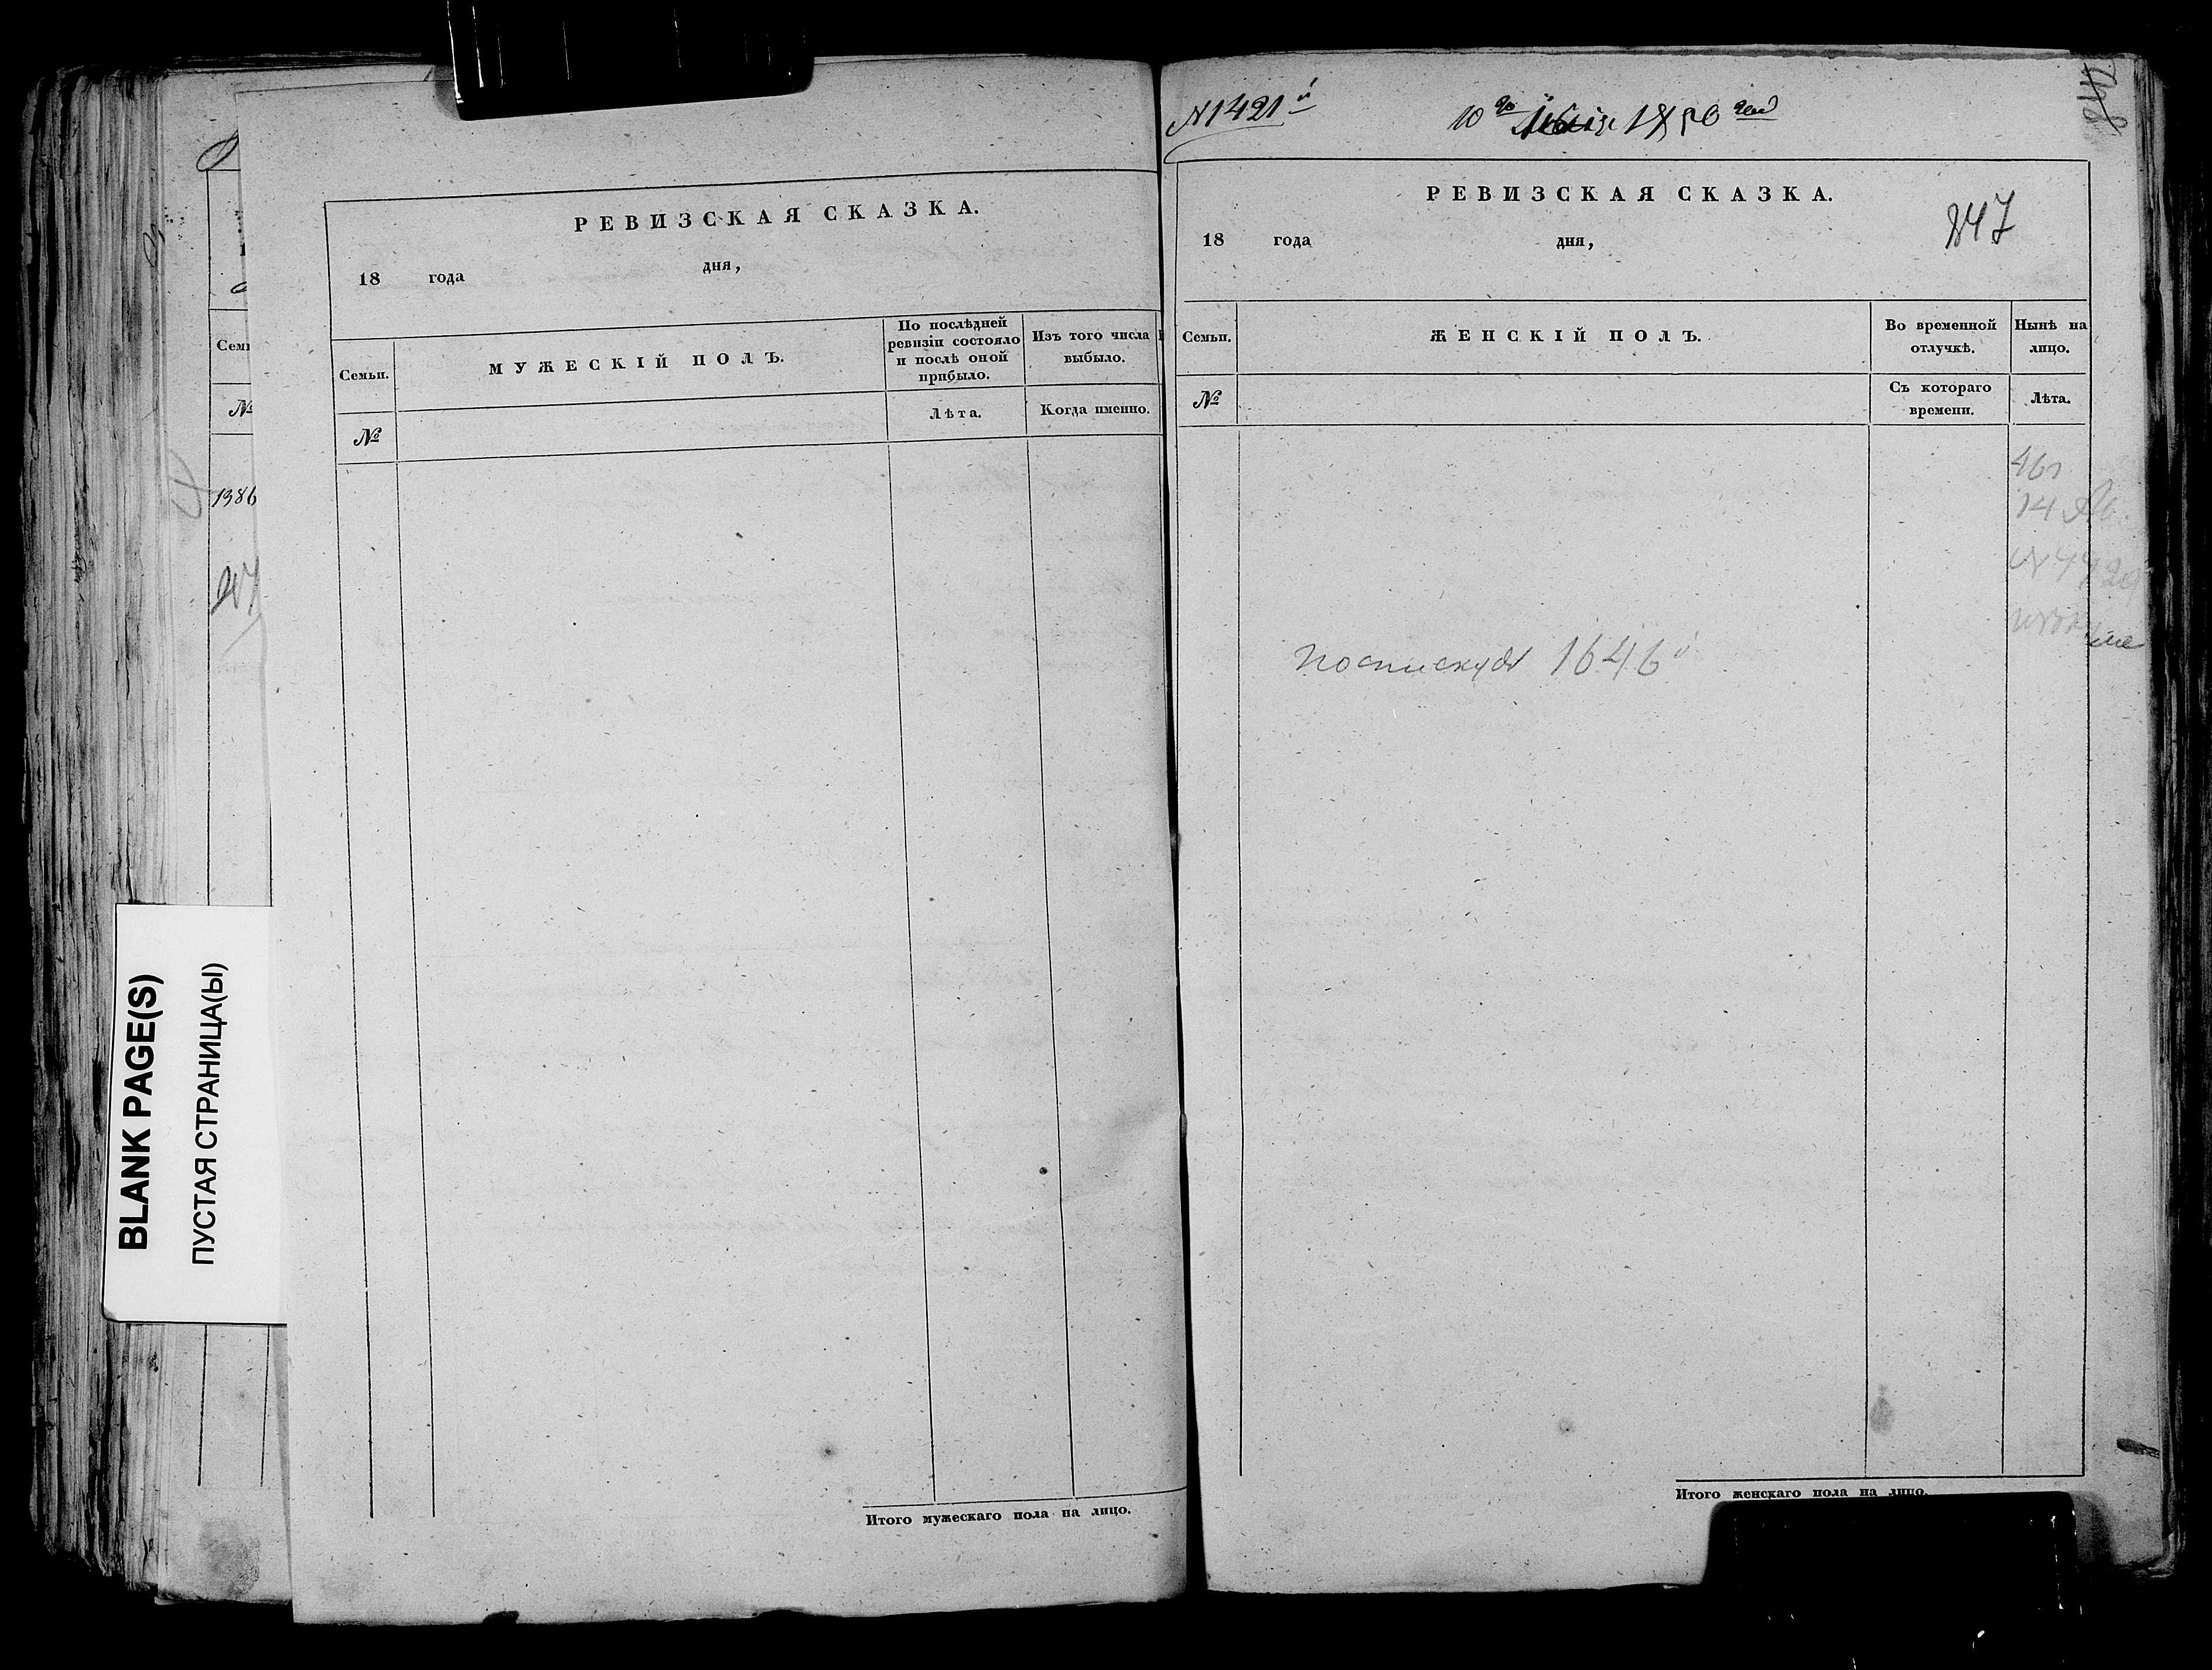 Семь
№
1386
BLANK PAGE(S)
ПУСТАЯ СТРАНИЦА(Ы)
РЕВИЗСКАЯ СКАЗКА.
18 года дня,
Семьи.
МУЖЕСКІЙ ПОЛЪ.
По послѣдней ревизіи состояло и послѣ оной прибыло.
Изъ того числа выбыло.
№
Лѣта.
Когда именно.
Итого мужескаго пола на лицо.
№1421й
10го 1850 года
РЕВИЗСКАЯ СКАЗКА.
847
18 года дня,
Семьи.
ЖЕНСКІЙ ПОЛЪ.
Во временной отлучкѣ.
Нынѣ на лицо.
№
Съ котораго времени.
Лѣта.
14
по списку № 1646й
Итого женскаго пола на лицо.